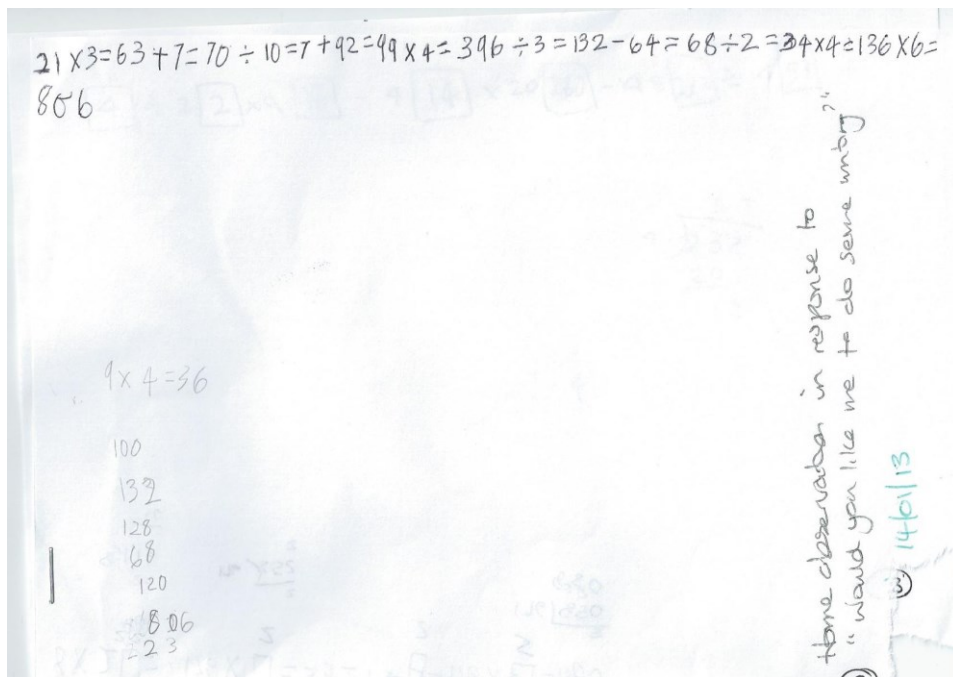 21 x 3 = 63 + 7 = 70 ÷ 10 = 7 + 92 = 99 x 4 = 396 ÷ 3 = 132 - 64 = 68 ÷ 2 = 34 x 4 = 136 x 6 =
806
9 x 4 = 36
100
132
128
168
120
806
23
Home observation in response to
"would you like me to do some writing?"
14/01/13